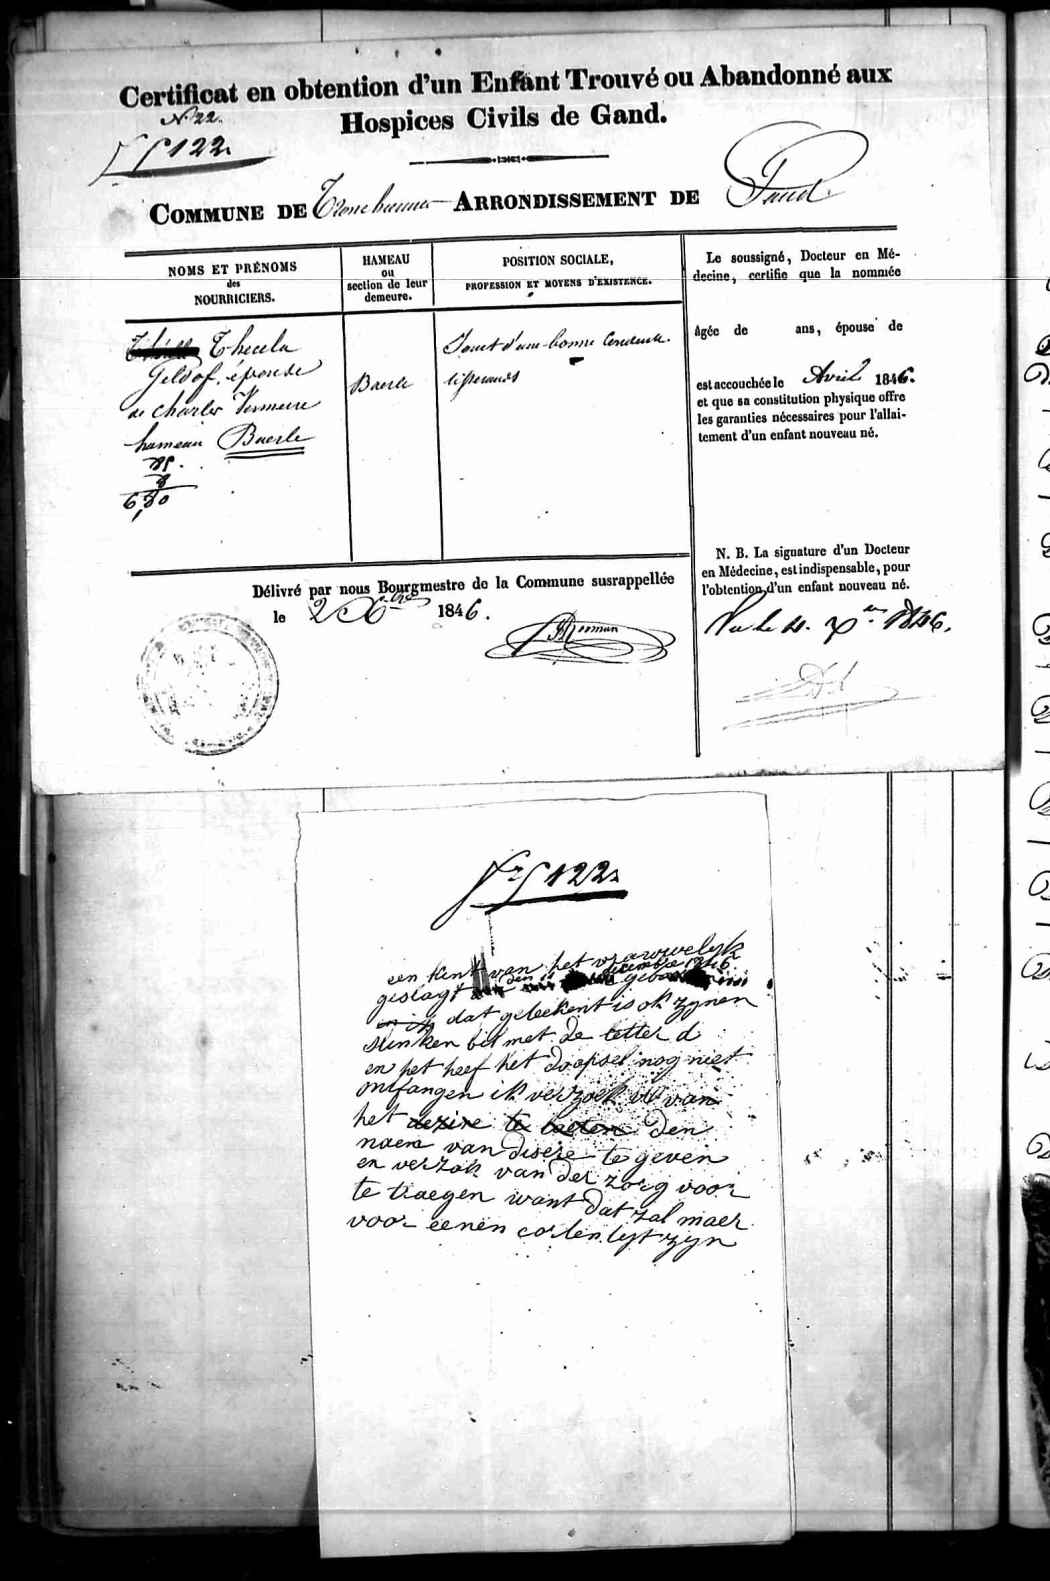 Certificat en obtention d'un Enfant Trouvé ou Abandonné aux
Hospices Civils de Gand.
N. 22.
122.
COMMUNE DE Tronchiennes ARRONDISSEMENT DE Gand
NOMS ET PRÉNOMS
des
NOURRICIERS.
HAMEAU
ou
section de leur
demeure.
POSITION SOCIALE,
PROFESSION ET MOYENS D'EXISTENCE.
Thecla
Geldof. épouse
de Charles Vermeire
hameau Baerle
8
6,80
Baerle
Sont d'une bonne Conduite.
tisserands
Le soussigné, Docteur en Mé-
decine, certifie que la nommée
âgée de ans, épouse de
est accouchée le Avril 1846.
et que sa constitution physique offre
les garanties nécessaires pour l'allai-
tement d'un enfant nouveau né.
N. B. La signature d'un Docteur
en Médecine, est indispensable, pour
l'obtention d'un enfant nouveau né.
Délivré par nous Bourgmestre de la Commune susrappellée
le 2 Xbre 1846.
Vu le 4. Xbre 1846.
122
een kint van het vrauwelyk
geslagt den decembre 1846 geboren
dat geteekent is ok zynen
slinken bil met de letter d
en het heef het doopsel nog niet
ontfangen ik verzoek U van
het dezire te laeten den
naem van disere te geven
en verzok van der zorg voor
te traegen want dat zal maer
voor eenen corten tyt zyn